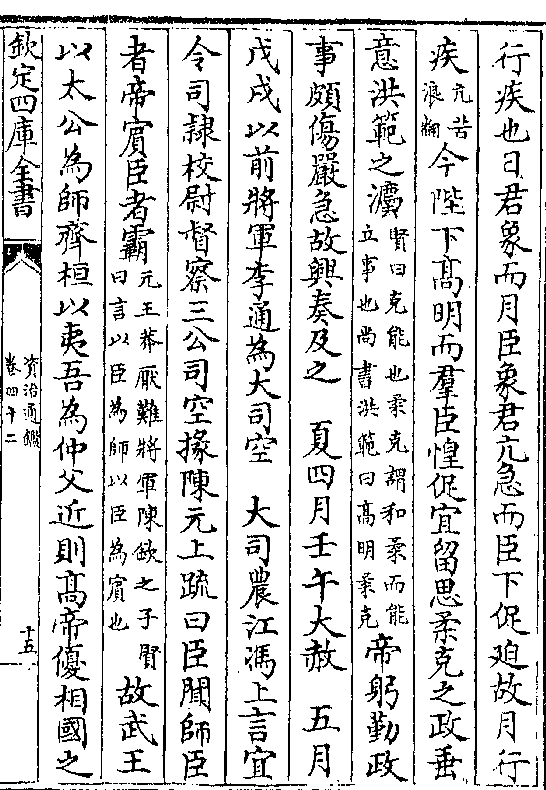 行疾也日君象而月臣象君亢急而臣下促迫故月行
疾亢苦浪翻今陛下髙明而羣臣惶促宜留思柔克之政垂
意洪範之灋賢曰克能也柔克謂和柔而能立事也尚書洪範曰髙明柔克帝躬勤政
事頗傷嚴急故興奏及之　夏四月壬午大赦　五月
戊戌以前將軍李通為大司空　大司農江馮上言宜
令司隷校尉督察三公司空掾陳元上疏曰臣聞師臣
者帝賔臣者霸元王莽厭難將軍陳欽之子賢曰言以臣為師以臣為賔也故武王
以太公為師齊桓以夷吾為仲父近則髙帝優相國之
欽定四庫全書
資治通鑑
卷四十二
十五